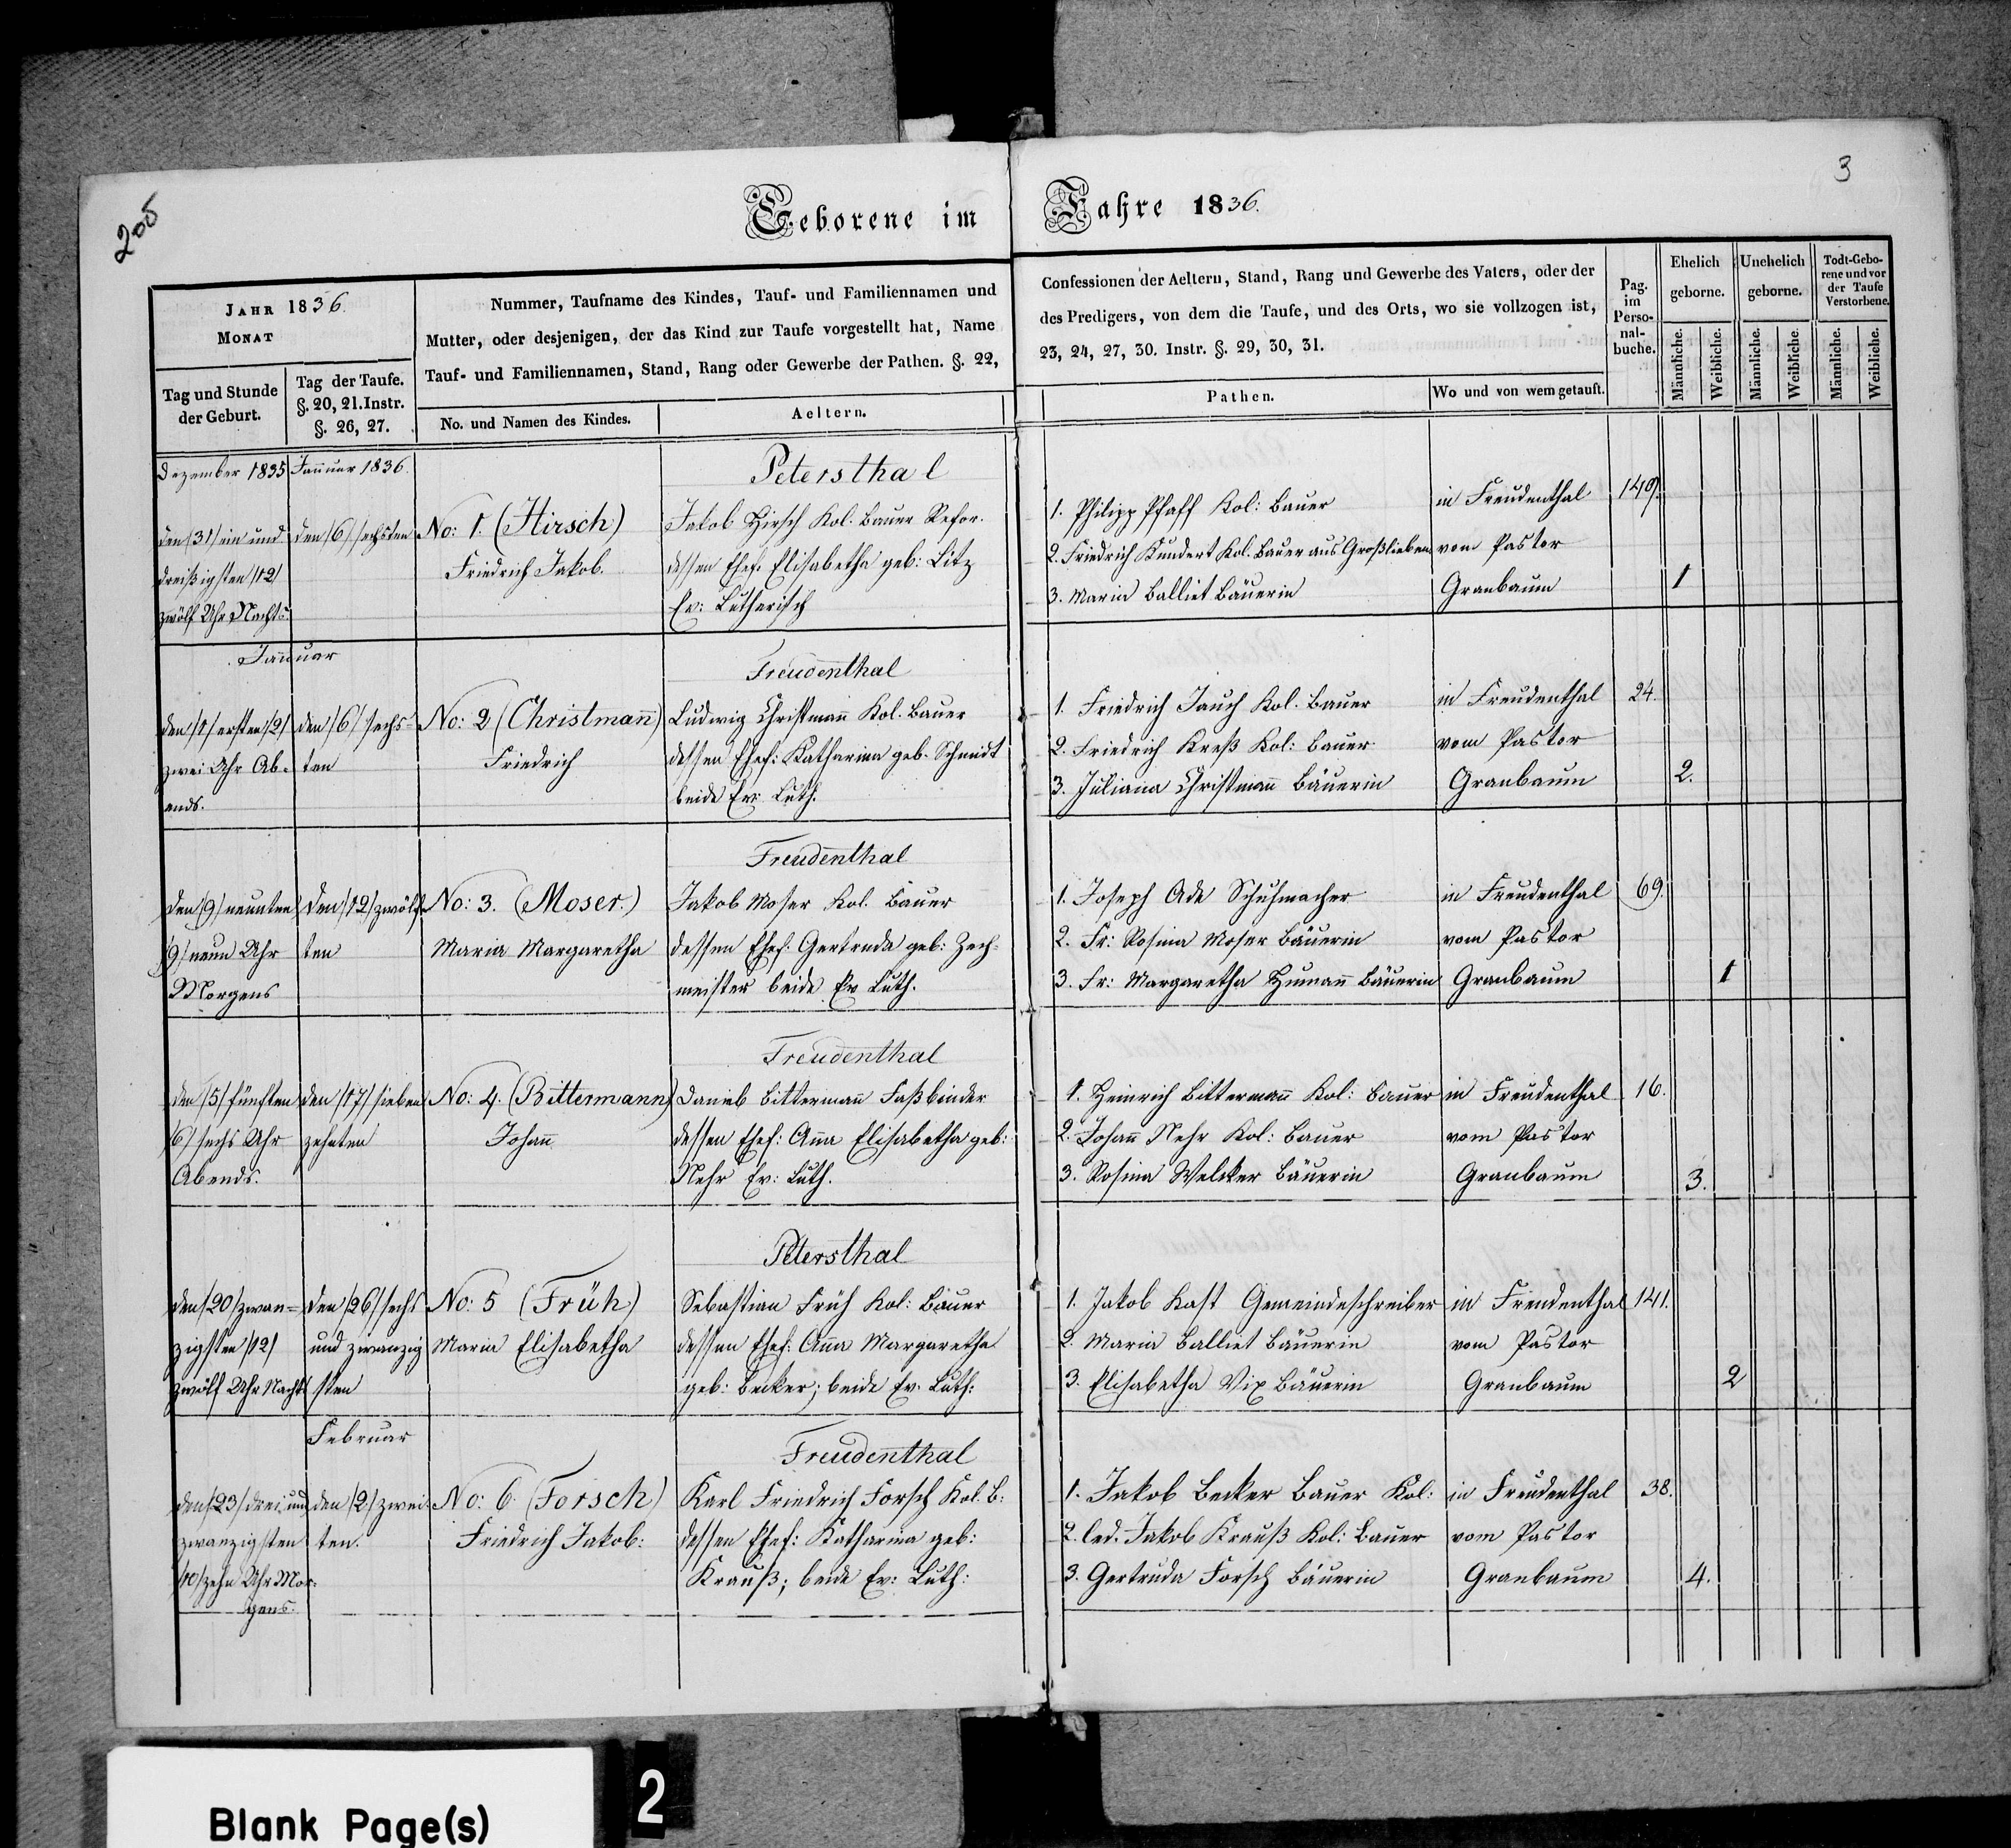 205
3
Geborene im Jahre 1836.
JAHR 1836.
MONAT
Tag und Stunde der Geburt.
Tag der Taufe. §. 20, 21. Instr. §. 26, 27.
Nummer, Taufname des Kindes, Tauf- und Familiennamen und
Mutter, oder desjenigen, der das Kind zur Taufe vorgestellt hat, Name
Tauf- und Familiennamen, Stand, Rang oder Gewerbe der Pathen. §. 22,
No. und Namen des Kindes.
Aeltern.
Confessionen der Aeltern, Stand, Rang und Gewerbe des Vaters, oder der
des Predigers, von dem die Taufe, und des Orts, wo sie vollzogen ist,
23, 24, 27, 30. Instr. §. 29, 30, 31.
Pathen.
Wo und von wem getauft.
Pag. im Perso-nal-buche.
Ehelich geborne.
Unehelich geborne.
Todt-Gebo-rene und vor der Taufe Verstorbene.
Männliche. Weibliche. Männliche. Weibliche. Männliche. Weibliche.
Dezember 1835
den /31/ ein und
dreißigsten /12/
zwölf Uhr Nachts.
Januar 1836.
den /6/ sechsten
No: 1. (Hirsch)
Friedrich Jakob.
Petersthal
Jakob Hirsch Kol. Bauer Refor.
dessen Ehef. Elisabetha geb: Litz
Ev: Lutherisch
1. Philipp Pfaff Kol: Bauer
2. Friedrich Kundert Kol. Bauer aus Großlieben
3. Maria Balliet Bäuerin
in Freudenthal
vom Pastor
Granbaum
149.
1
Januar
den /1/ ersten /2/
zwei Uhr Ab-
ends.
den /6/ sechs-
ten
No: 2 (Christmann)
Friedrich
Freudenthal
Ludwig Christmann Kol. Bauer
dessen Ehef: Katharina geb. Schmidt
beide Ev: Luth.
1. Friedrich Jauch Kol. Bauer
2. Friedrich Kreß Kol: Bauer
3. Juliana Christmann Bäuerin
in Freudenthal
vom Pastor
Granbaum
24.
2.
den /9/ neunten
/9/ neun Uhr
Morgens
den /12/ zwölf-
ten
No: 3. (Moser.)
Maria Margaretha
Freudenthal
Jakob Moser Kol. Bauer
dessen Ehef: Gertruda geb: Zech-
meister beide Ev Luth.
1. Joseph Ade Schuhmacher
2. Fr: Rosina Moser Bäuerin
3. Fr: Margaretha Humann Bäuerin
in Freudenthal
vom Pastor
Granbaum
69.
1
den /5/ fünften
/6/ sechs Uhr
Abends.
den /17/ sieben
zehnten
No: 4. (Bittermann)
Johann
Freudenthal
Daniel Bittermann Faßbinder
dessen Ehef: Anna Elisabetha geb:
Nehr Ev: Luth.
1. Heinrich Bittermann Kol: Bauer
2. Johann Nehr Kol: Bauer
3. Rosina Welcker Bäuerin
in Freudenthal
vom Pastor
Granbaum
16.
3.
den /20/ zwan=
zigsten /12/
zwölf Uhr Nachts
den /26/ sechs
und zwanzig
sten
No: 5 (Früh)
Maria Elisabetha
Petersthal
Sebastian Früh Kol: Bauer
dessen Ehef: Anna Margaretha
geb: Becker; beide Ev. Luth:
1. Jakob Kast Gemeindeschreiber
2. Maria Balliet Bäuerin
3. Elisabetha Vix Bäuerin
in Freudenthal
vom Pastor
Granbaum
141.
2
Februar
den /23/ drei und
zwanzigsten
/10/ zehn Uhr Mor-
gens.
den /2/ zwei-
ten.
No: 6. (Forsch)
Friedrich Jakob:
Freudenthal
Karl Friedrich Forsch Kol. B:
dessen Ehef: Katharina geb:
Krauß; beide Ev: Luth:
1. Jakob Becker Bauer Kol:
2. led. Jakob Krauß Kol: Bauer
3. Gertruda Forsch Bäuerin
in Freudenthal
vom Pastor
Granbaum
38.
4.
Blank Page(s)
2